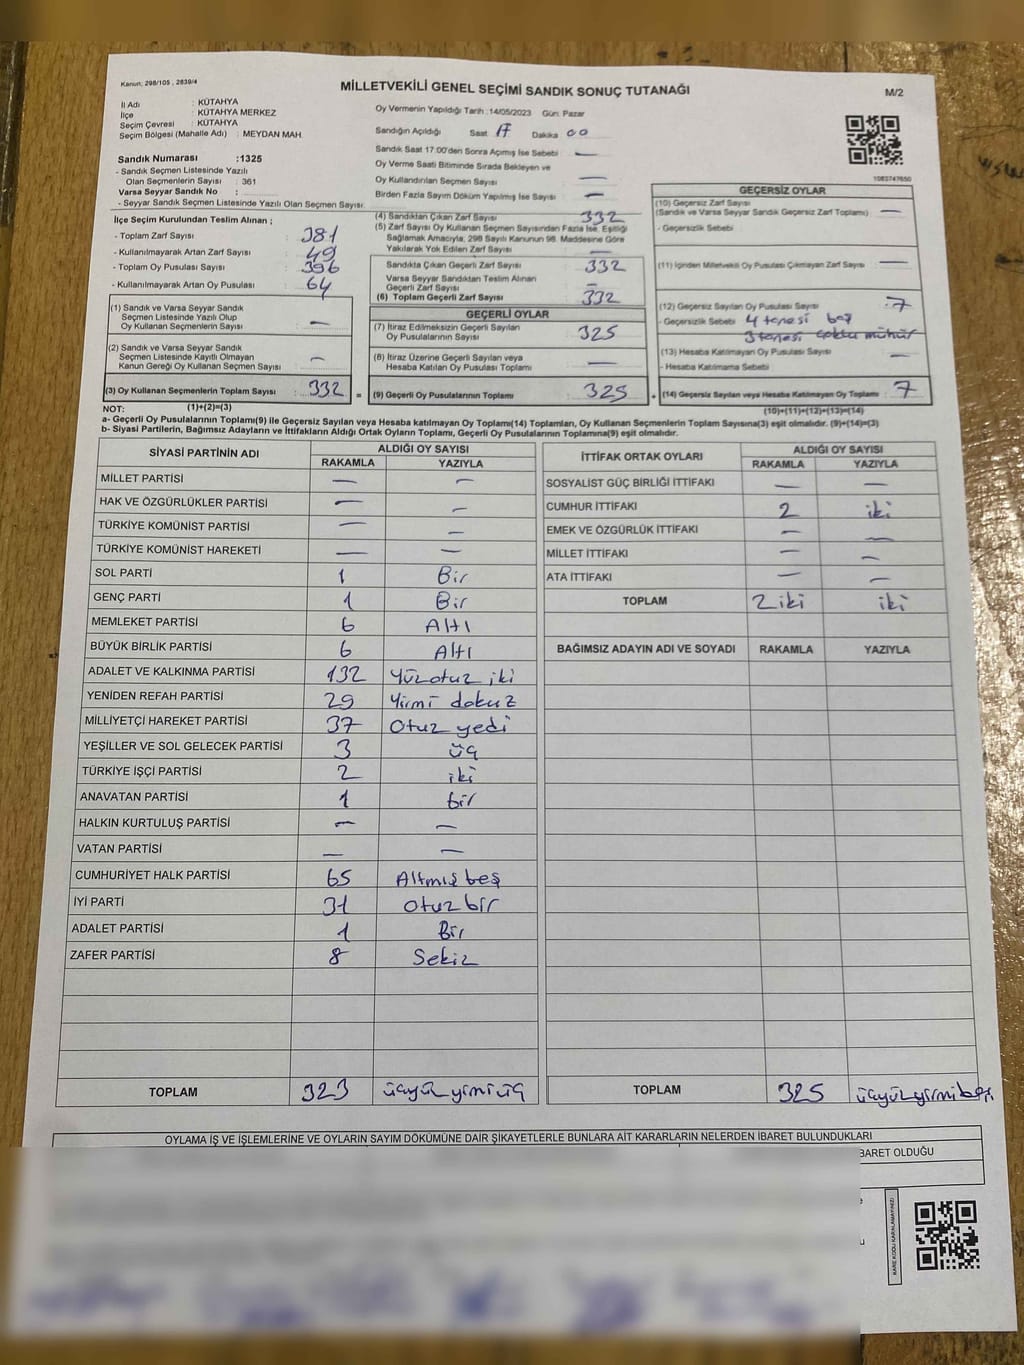 Kanun: 298/105 , 2839/4
MİLLETVEKİLİ GENEL SEÇİMİ SANDIK SONUÇ TUTANAĞI
M/2
İl Adı : KÜTAHYA
İlçe : KÜTAHYA MERKEZ
Seçim Çevresi : KÜTAHYA
Seçim Bölgesi (Mahalle Adı) : MEYDAN MAH.
Sandık Numarası :1325
- Sandık Seçmen Listesinde Yazılı
Olan Seçmenlerin Sayısı : 361
Varsa Seyyar Sandık No :
- Seyyar Sandık Seçmen Listesinde Yazılı Olan Seçmen Sayısı:
İlçe Seçim Kurulundan Teslim Alınan ;
- Toplam Zarf Sayısı : 381
- Kullanılmayarak Artan Zarf Sayısı : 49
- Toplam Oy Pusulası Sayısı : 396
- Kullanılmayarak Artan Oy Pusulası : 64
(1) Sandık ve Varsa Seyyar Sandık
Seçmen Listesinde Yazılı Olup
Oy Kullanan Seçmenlerin Sayısı : —
(2) Sandık ve Varsa Seyyar Sandık
Seçmen Listesinde Kayıtlı Olmayan
Kanun Gereği Oy Kullanan Seçmen Sayısı : —
(3) Oy Kullanan Seçmenlerin Toplam Sayısı : 332 =
Oy Vermenin Yapıldığı Tarih :14/05/2023 Gün: Pazar
Sandığın Açıldığı Saat 17 Dakika 00
Sandık Saat 17:00'den Sonra Açımış İse Sebebi : —
Oy Verme Saati Bitiminde Sırada Bekleyen ve
Oy Kullandırılan Seçmen Sayısı : —
Birden Fazla Sayım Döküm Yapılmış İse Sayısı : —
(4) Sandıktan Çıkan Zarf Sayısı : 332
(5) Zarf Sayısı Oy Kullanan Seçmen Sayısından Fazla İse, Eşitliği
Sağlamak Amacıyla, 298 Sayılı Kanunun 98. Maddesine Göre
Yakılarak Yok Edilen Zarf Sayısı : —
Sandıkta Çıkan Geçerli Zarf Sayısı : 332
Varsa Seyyar Sandıktan Teslim Alınan
Geçerli Zarf Sayısı : —
(6) Toplam Geçerli Zarf Sayısı : 332
GEÇERLİ OYLAR
(7) İtiraz Edilmeksizin Geçerli Sayılan
Oy Pusulalarının Sayısı : 325
(8) İtiraz Üzerine Geçerli Sayılan veya
Hesaba Katılan Oy Pusulası Toplamı : —
(9) Geçerli Oy Pusulalarının Toplamı : 325 +
1083747650
GEÇERSİZ OYLAR
(10) Geçersiz Zarf Sayısı
(Sandık ve Varsa Seyyar Sandık Geçersiz Zarf Toplamı) : —
- Geçersizlik Sebebi
(11) İçinden Milletvekili Oy Pusulası Çıkmayan Zarf Sayısı : —
(12) Geçersiz Sayılan Oy Pusulası Sayısı : 7
- Geçersizlik Sebebi 4 tanesi boş
3 tanesi çoklu mühür
(13) Hesaba Katılmayan Oy Pusulası Sayısı : —
- Hesaba Katılmama Sebebi
(14) Geçersiz Sayılan veya Hesaba Katılmayan Oy Toplamı : 7
NOT: (1)+(2)=(3) (10)+(11)+(12)+(13)=(14)
a- Geçerli Oy Pusulalarının Toplamı(9) ile Geçersiz Sayılan veya Hesaba katılmayan Oy Toplamı(14) Toplamları, Oy Kullanan Seçmenlerin Toplam Sayısına(3) eşit olmalıdır. (9)+(14)=(3)
b- Siyasi Partilerin, Bağımsız Adayların ve İttifakların Aldığı Ortak Oyların Toplamı, Geçerli Oy Pusulalarının Toplamına(9) eşit olmalıdır.
SİYASİ PARTİNİN ADI ALDIĞI OY SAYISI
RAKAMLA YAZIYLA
MİLLET PARTİSİ — —
HAK VE ÖZGÜRLÜKLER PARTİSİ — —
TÜRKİYE KOMÜNİST PARTİSİ — —
TÜRKİYE KOMÜNİST HAREKETİ — —
SOL PARTİ 1 Bir
GENÇ PARTİ 1 Bir
MEMLEKET PARTİSİ 6 Altı
BÜYÜK BİRLİK PARTİSİ 6 Altı
ADALET VE KALKINMA PARTİSİ 132 Yüzotuz iki
YENİDEN REFAH PARTİSİ 29 Yirmi dokuz
MİLLİYETÇİ HAREKET PARTİSİ 37 Otuz yedi
YEŞİLLER VE SOL GELECEK PARTİSİ 3 üç
TÜRKİYE İŞÇİ PARTİSİ 2 iki
ANAVATAN PARTİSİ 1 bir
HALKIN KURTULUŞ PARTİSİ — —
VATAN PARTİSİ — —
CUMHURİYET HALK PARTİSİ 65 Altmış beş
İYİ PARTİ 31 Otuz bir
ADALET PARTİSİ 1 Bir
ZAFER PARTİSİ 8 Sekiz
TOPLAM 323 üçyüz yirmi üç
İTTİFAK ORTAK OYLARI ALDIĞI OY SAYISI
RAKAMLA YAZIYLA
SOSYALİST GÜÇ BİRLİĞİ İTTİFAKI — —
CUMHUR İTTİFAKI 2 iki
EMEK VE ÖZGÜRLÜK İTTİFAKI — —
MİLLET İTTİFAKI — —
ATA İTTİFAKI — —
TOPLAM 2 iki iki
BAĞIMSIZ ADAYIN ADI VE SOYADI RAKAMLA YAZIYLA
TOPLAM 325 üçyüz yirmi beş
OYLAMA İŞ VE İŞLEMLERİNE VE OYLARIN SAYIM DÖKÜMÜNE DAİR ŞİKAYETLERLE BUNLARA AİT KARARLARIN NELERDEN İBARET BULUNDUKLARI
BARET OLDUĞU
KARE KODU KARALAMAYINIZ!